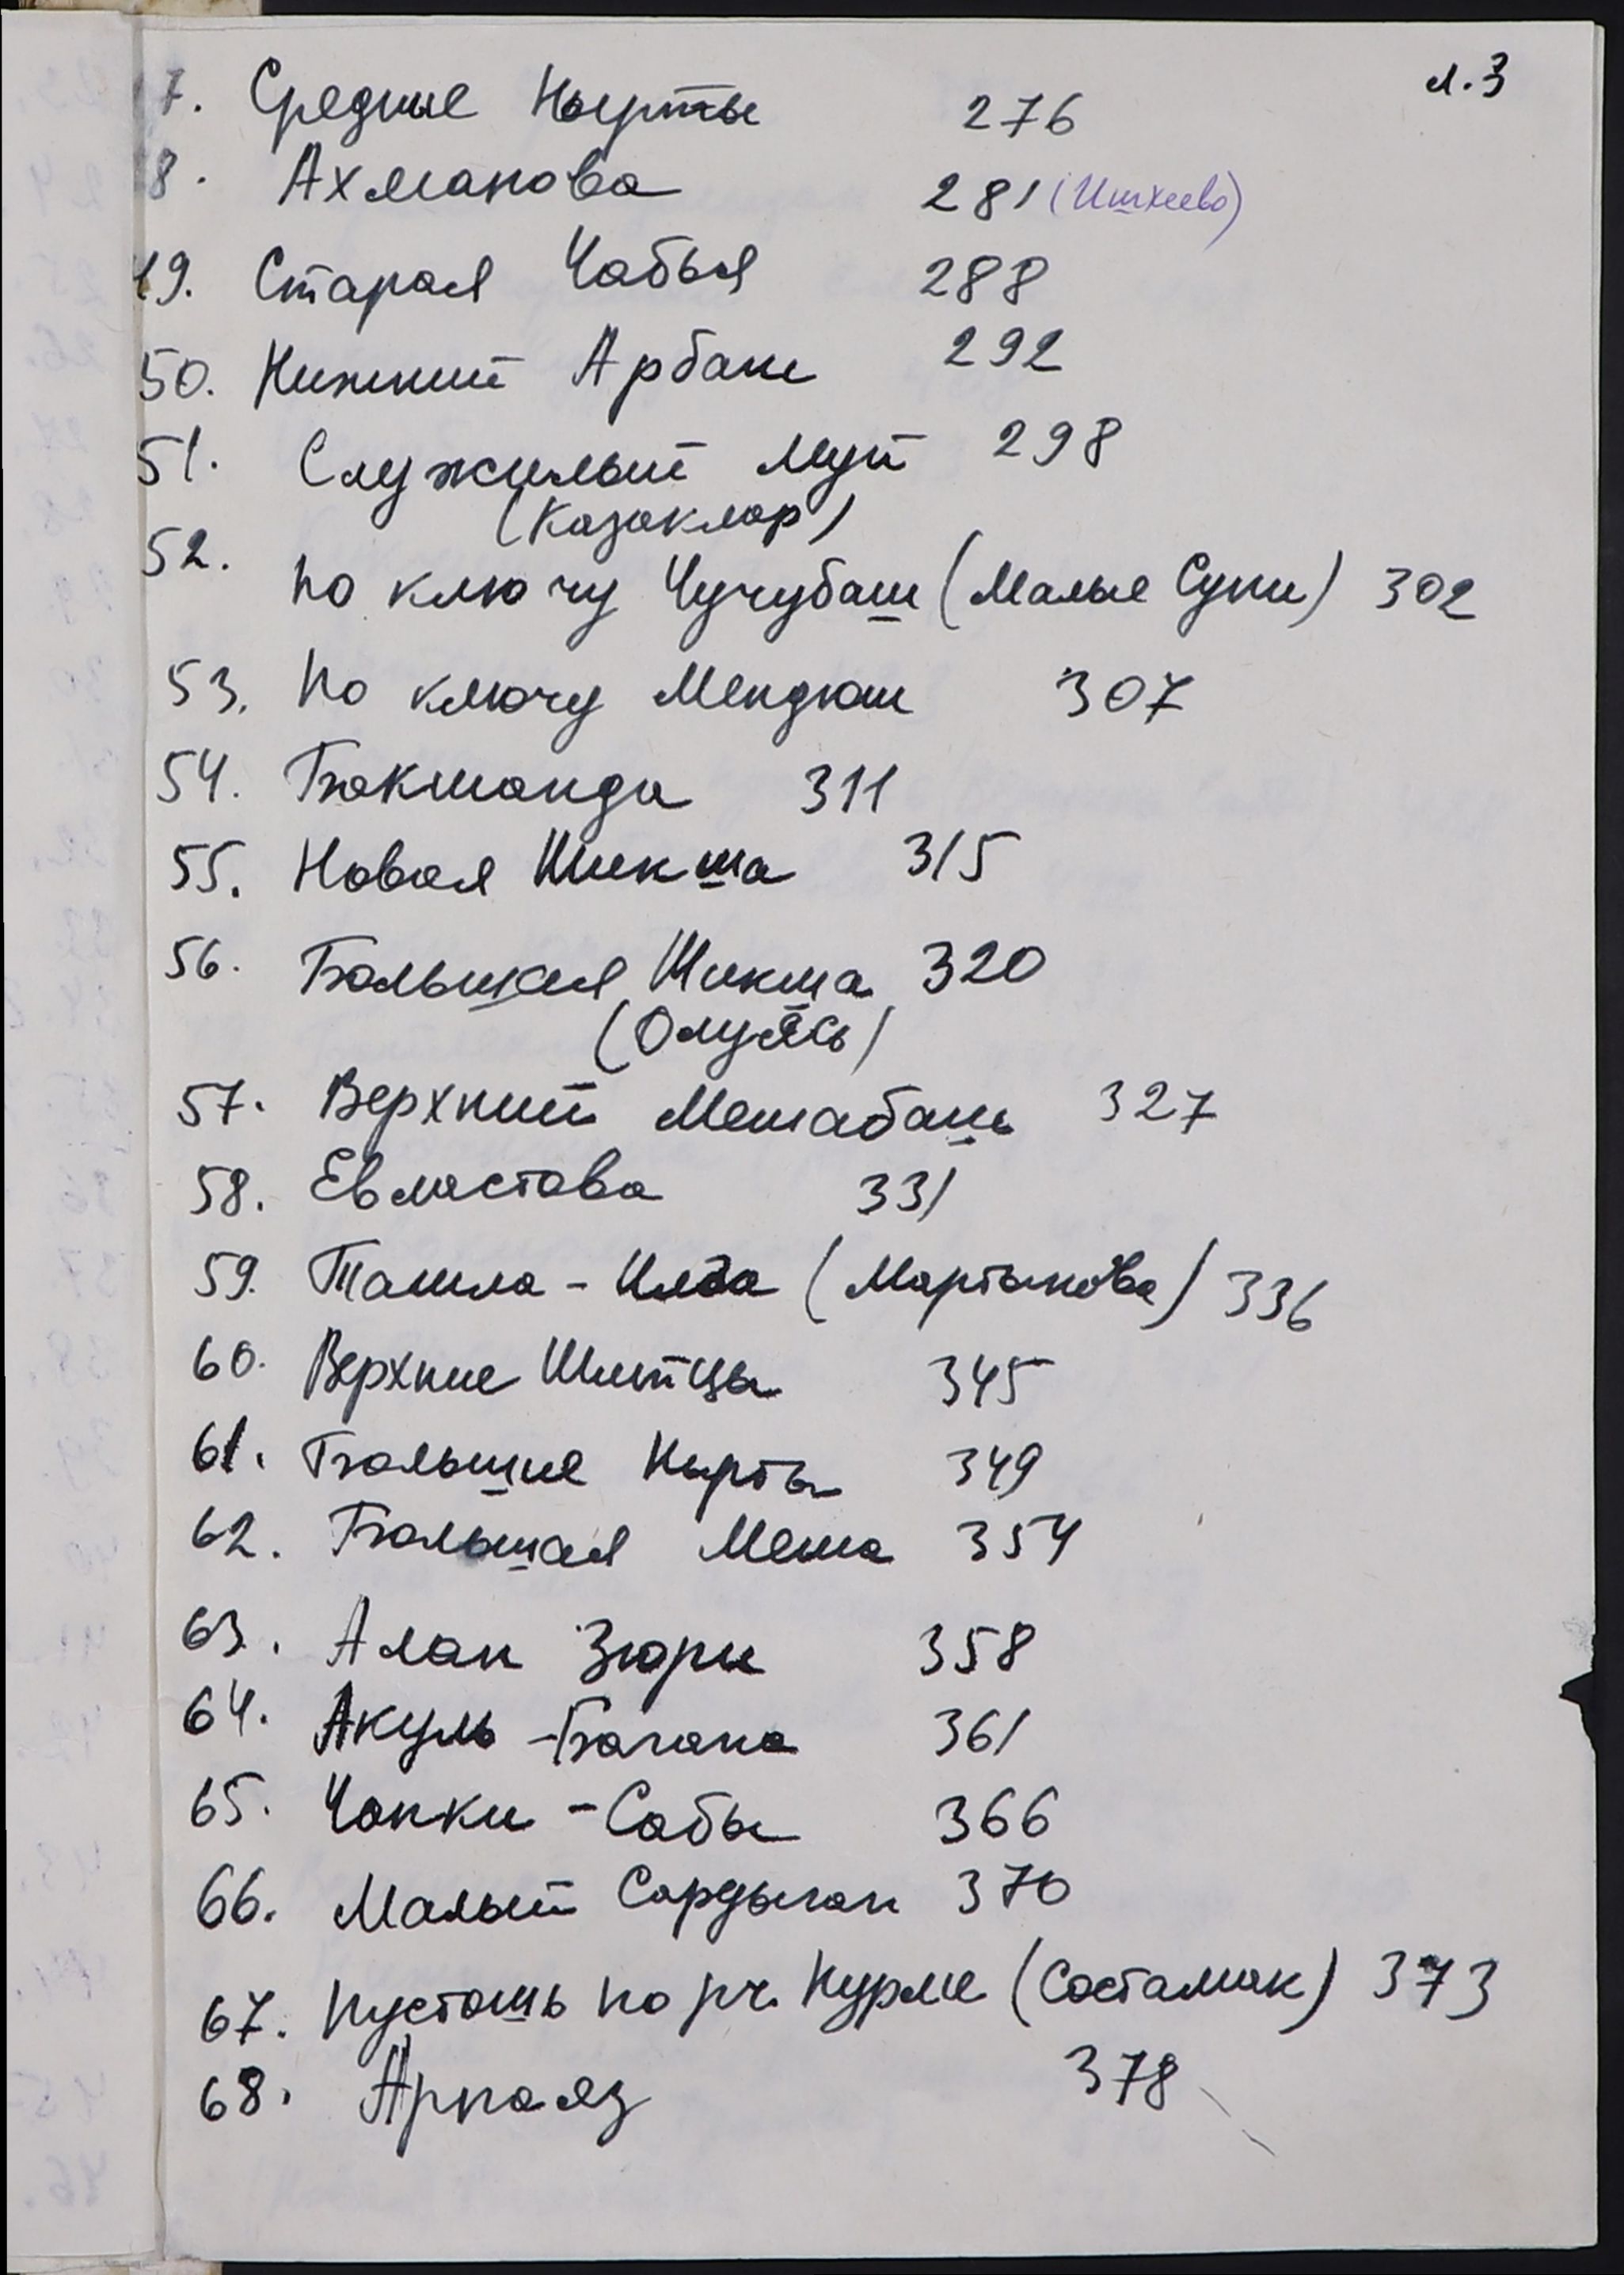 л. 3
7. Средние Нырты 276
8. Ахманова 281 (Ишкеево)
49. Старая Чабья 288
50. Нижний Арбаш 292
51. Служилый Муй 298
(Казаклар)
52. по ключу Чучубаш (Малые Суни) 302
53. по ключу Мендюш 307
54. Бакшанда 311
55. Новая Шикша 315
56. Большая Шикша 320
(Олуязь)
57. Верхний Мешабашь 327
58. Евластова 331
59. Ташла - Илга (Мартынова) 336
60. Верхние Шитцы 345
61. Большие Нырты 349
62. Большая Меша 354
63. Алан Зюри 358
64. Акуль - Багана 361
65. Чапки - Сабы 366
66. Малый Сардыган 370
67. Пустошь по рч. Нурме (Састамак) 373
68. Арпаяз 378